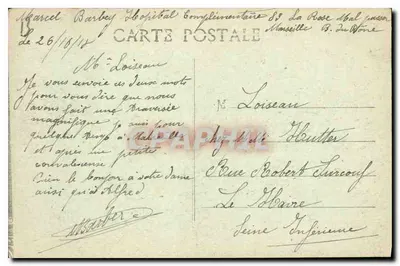 Marcel Barbey Hopital Complementaire 83 La Rose Mal
Marseille B. du Rhône
le 26/10/18
CARTE POSTALE
Mr Loiseau
Je vous envoie ces deux mots
pour vous dire que nous
avons fait une traversée
magnifique je suis pour
quelque temps à
et après une petite
convalescence
Bien le bonjour à votre dame
ainsi qu'à Alfred
MBarbey
Mr Loiseau
chez Mr Hutter
Rue Robert Surcouf
Le Havre
Seine Inférieure